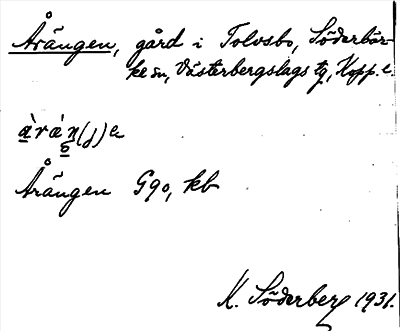 Årängen, gård i Tolvsbo, Söderbär-
ke sn, Västerbergslags tg, Kopp. l.
Årängen G90, kb
K. Söderberg 1931.